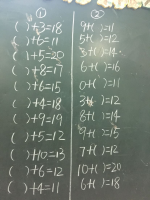 ① ②
( )+3=18 9+( )=11
( )+6=11 5+( )=12
( )+5=20 3+( )=14
( )+8=17 6+( )=16
( )+6=15 0+( )=11
( )+4=18 3+( )=12
( )+9=19 8+( )=14
( )+5=12 9+( )=15
( )+10=13 7+( )=12
( )+6=12 10+( )=20
( )+4=11 6+( )=18